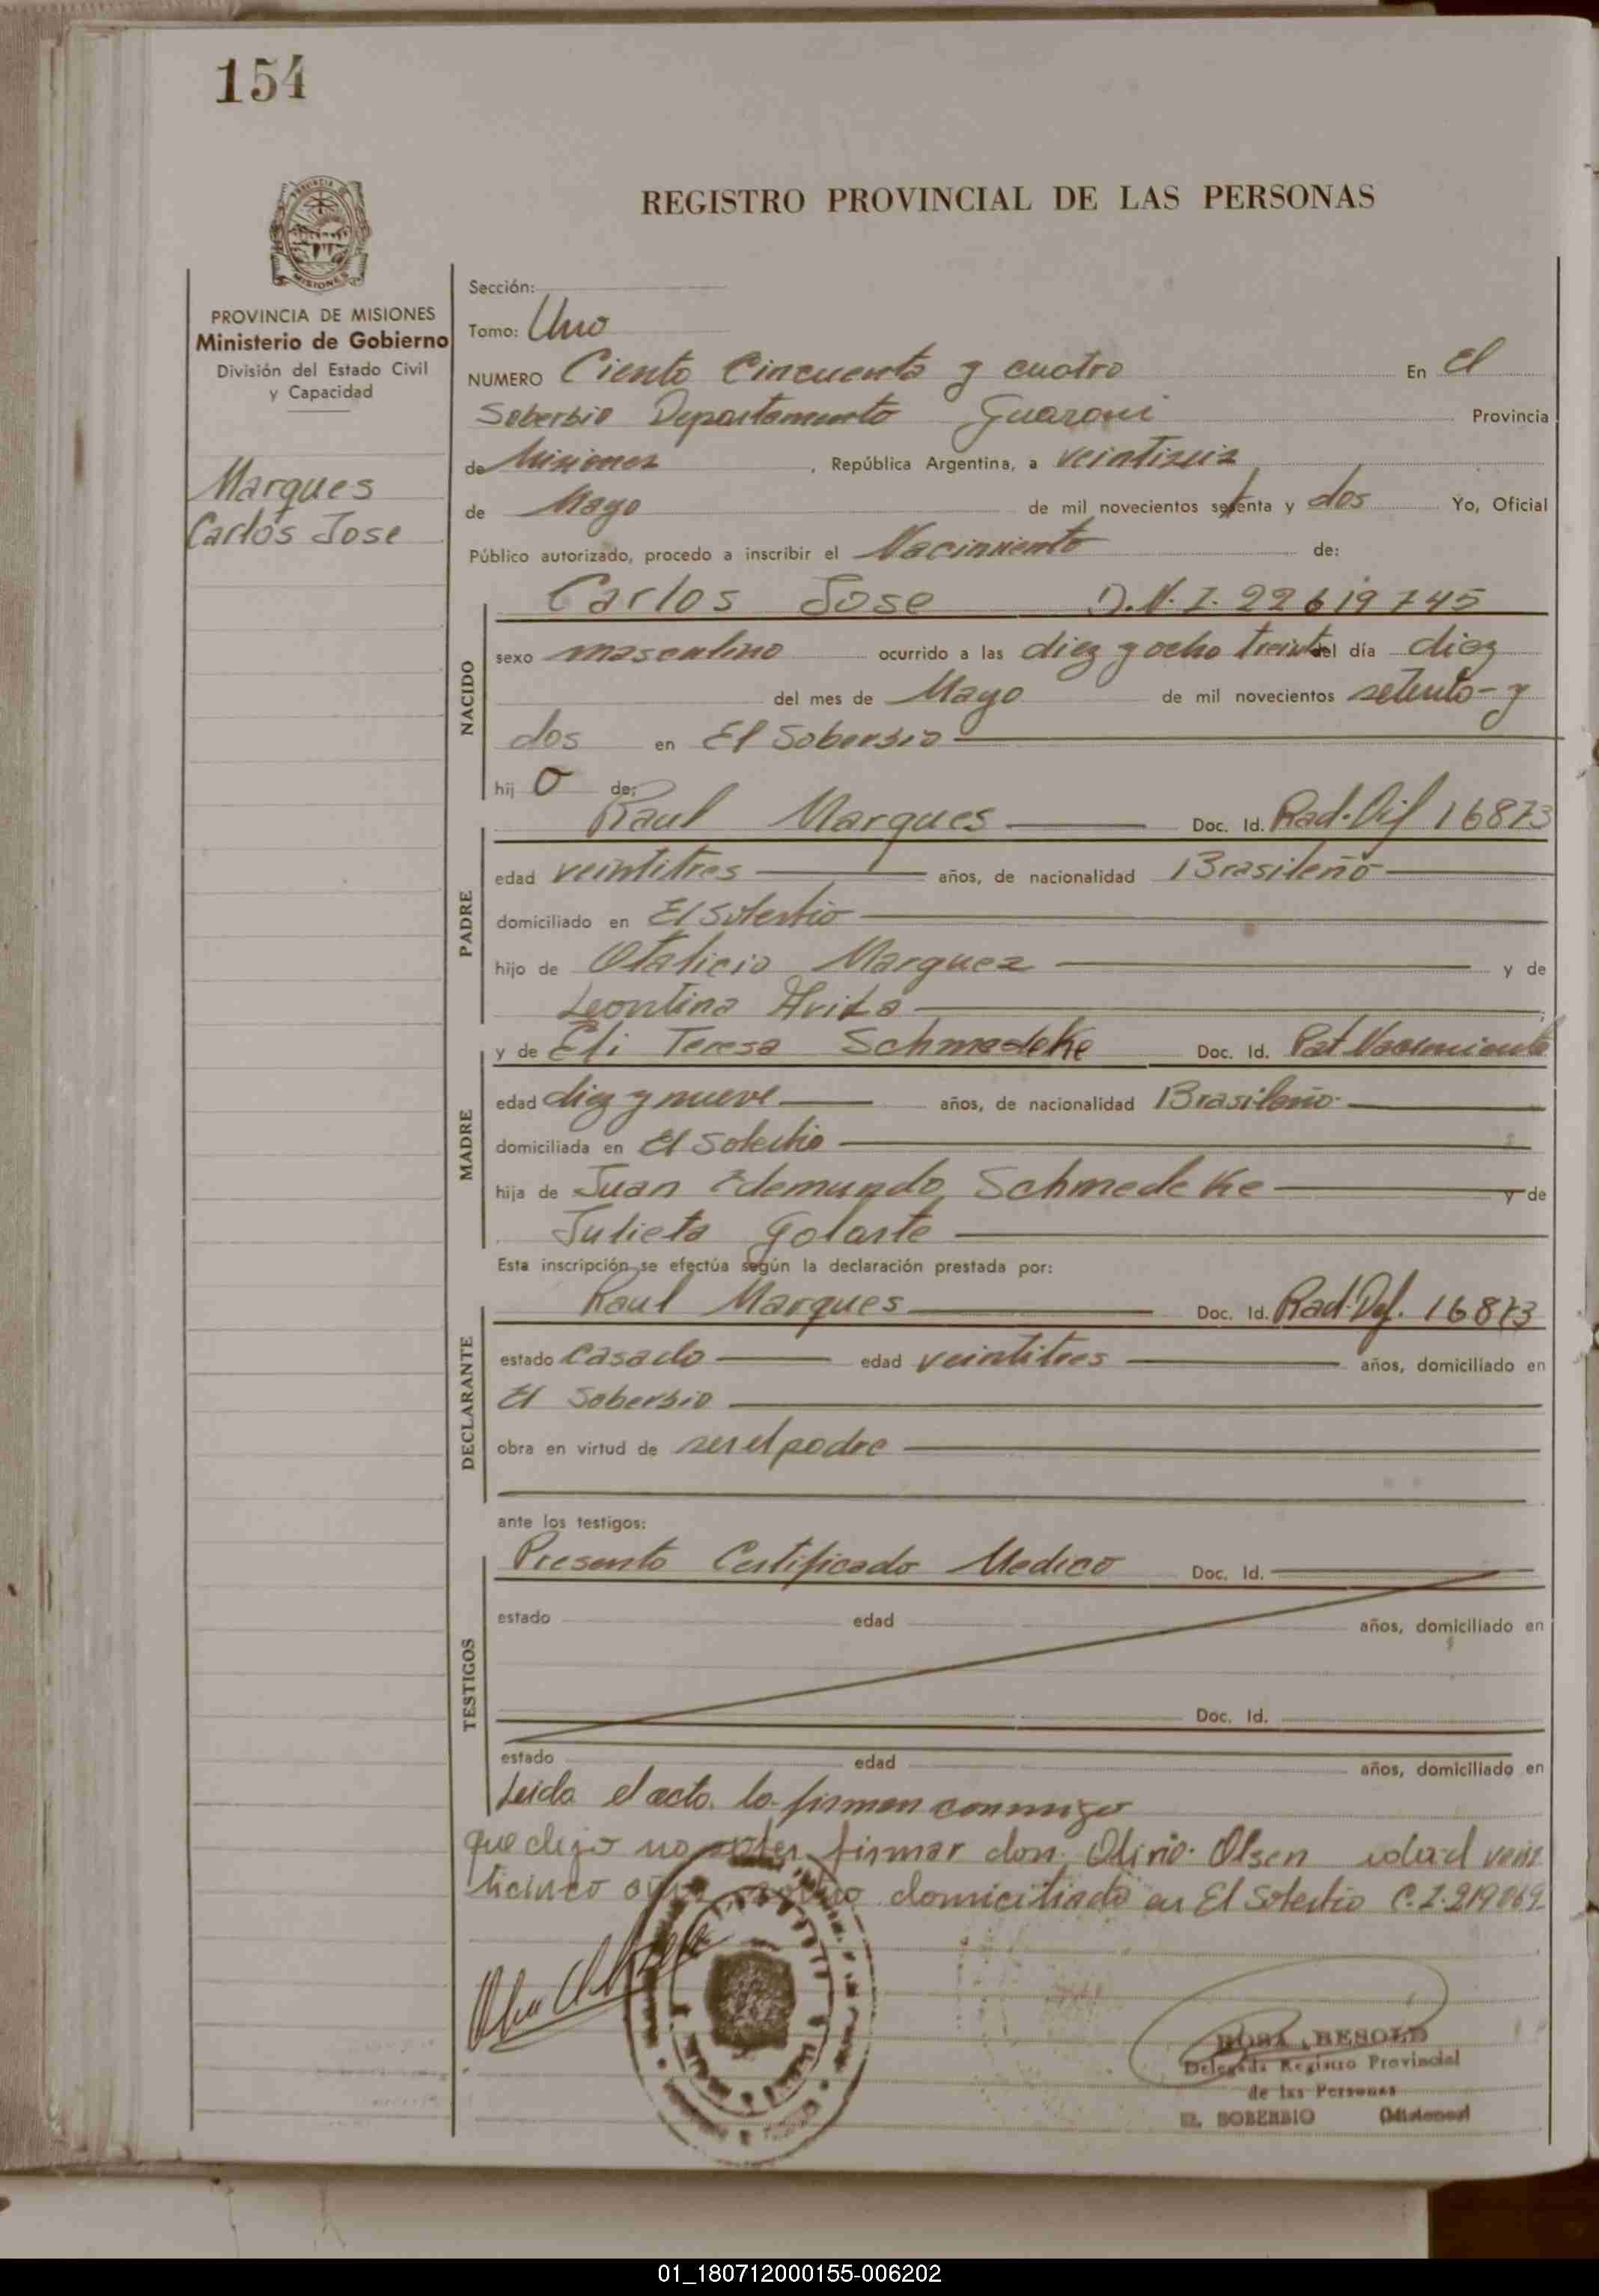 154
REGISTRO PROVINCIAL DE LAS PERSONAS
PROVINCIA DE MISIONES
Ministerio de Gobierno
División del Estado Civil
y Capacidad
Marques
Carlos Jose
Sección:
Tomo: Uno
NUMERO Ciento Cincuenta y cuatro En El
Soberbio Departamento Guarani Provincia
de Misiones, República Argentina, a veintiseis
de Mayo de mil novecientos setenta y dos Yo, Oficial
Público autorizado, procedo a inscribir el Nacimiento de:
NACIDO
Carlos Jose D.N.I. 22619745
sexo masculino ocurrido a las diez y ocho treinta del día diez
del mes de Mayo de mil novecientos setenta y
dos en El Soberbio
hij o de:
PADRE
Raul Marques Doc. Id. Rad. Dif 16873
edad veintitres años, de nacionalidad Brasileño
domiciliado en El Soberbio
hijo de Otalicio Marquez y de
Leontina Avila
MADRE
y de Eli Teresa Schmedeke Doc. Id. Pat Nacimiento
edad diez y nueve años, de nacionalidad Brasileño
domiciliada en El Soberbio
hija de Juan Edemundo Schmedeke y de
Julieta Golarte
Esta inscripción se efectúa según la declaración prestada por:
DECLARANTE
Raul Marques Doc. Id. Rad. Def. 16873
estado casado edad veintitres años, domiciliado en
El Soberbio
obra en virtud de ser el padre
ante los testigos:
TESTIGOS
Presento Certificado Medico Doc. Id.
estado edad años, domiciliado en
Doc. Id.
estado edad años, domiciliado en
Leida el acta la firman conmigo
que dijo no firmar don Olirio Olsen edad vein
ticinco domiciliado en El Soberbio C.I. 219069
ROSA BESOLD
Delegada Registro Provincial
de las Personas
EL SOBERBIO (Misiones)
01_180712000155-006202